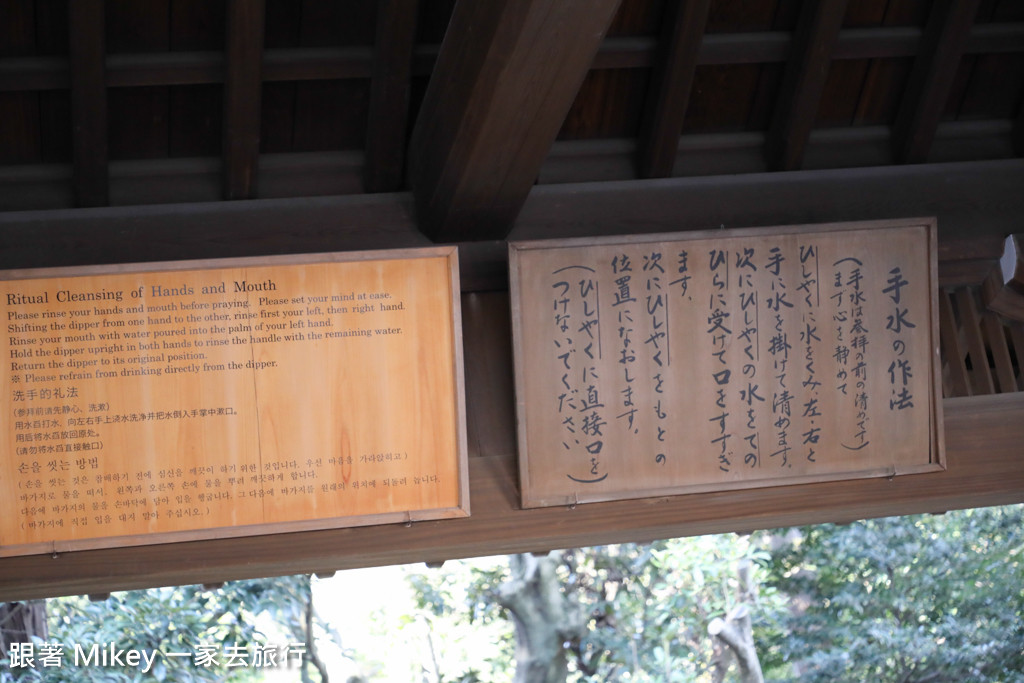 Ritual Cleansing of Hands and Mouth
Please rinse your hands and mouth before praying. Please set your mind at ease.
Shifting the dipper from one hand to the other, rinse first your left, then right hand.
Rinse your mouth with water poured into the palm of your left hand.
Hold the dipper upright in both hands to rinse the handle with the remaining water.
Return the dipper to its original position.
※ Please refrain from drinking directly from the dipper.
洗手的礼法
(参拜前请先静心、洗漱)
用水舀打水，向左右手上浇水洗净并把水倒入手掌中漱口。
用后将水舀放回原处。
(请勿将水舀直接触口)
손을 씻는 방법
( 손을 씻는 것은 참배하기 전에 심신을 깨끗이 하기 위한 것입니다. 우선 마음을 가라앉히고 )
바가지로 물을 떠서, 왼쪽과 오른쪽 손에 물을 뿌려 깨끗하게 합니다.
다음에 바가지의 물을 손바닥에 담아 입을 헹굽니다. 그 다음에 바가지를 원래의 위치에 되돌려 놓니다.
( 바가지에 직접 입을 대지 말아 주십시오. )
手水の作法
(手水は参拝の前の清めです)
(まず心を静めて
ひしゃくに水をくみ、左・右と
手に水を掛けて清めます。
次にひしゃくの水をての
ひらに受けて口をすすぎ
ます。
次にひしゃくをもとの
位置になおします。
(ひしゃくに直接口を)
つけないでください
跟著 Mikey 一家去旅行